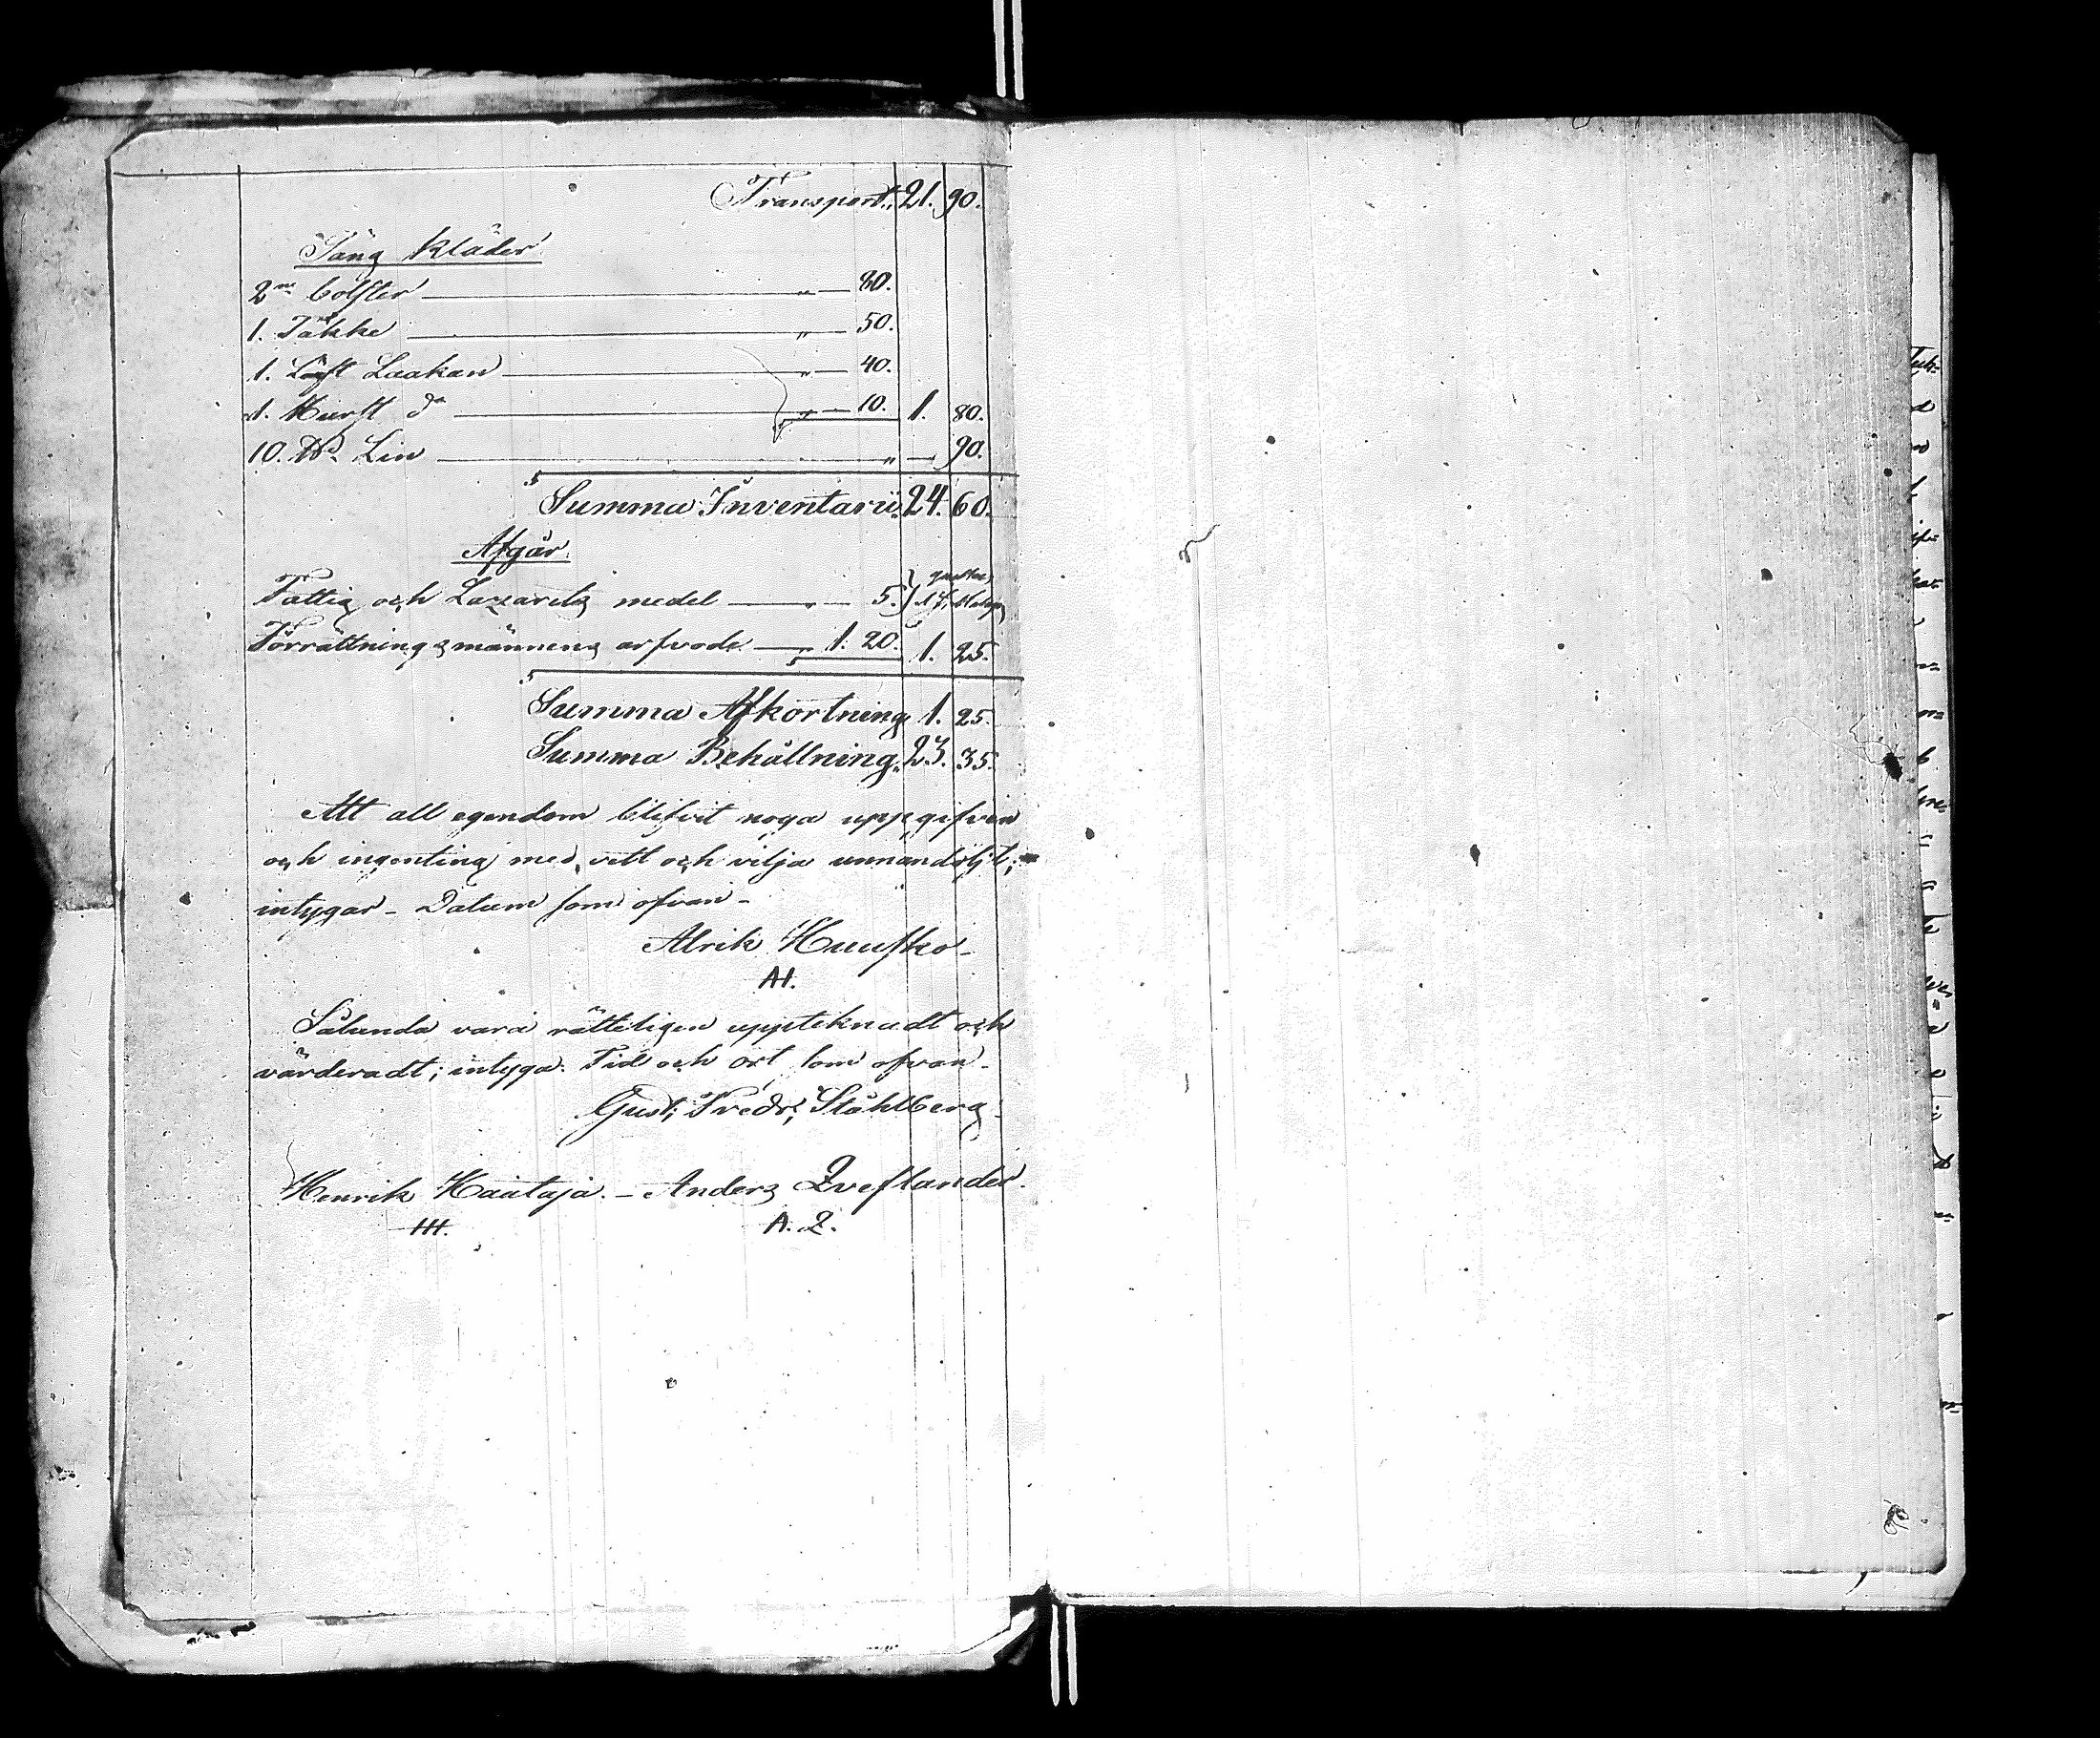 Transport.. 21. 90.
Säng Kläder
2ne bolster — „ — 80.
1. Täkke — „ — 50.
1. Lärft Laakan — „ — 40.
1. Hurst do — „ — 10. 1. 80.
10. Lin — „ — 90.
Summa Inventarii.. 24. 60.
Afgår.
Fattig och Lazaretz medel — „ — 5.
Förrättningzmännenz arfvode — „ 1. 20. 1. 25.
Summa Afkortning 1. 25.
Summa Behållning.. 23. 35.
Att all egendom blifvit noga uppgifven
och ingenting med vett och vilja unnandöljt;
intygar – Datum som ofvan –
Alrik Huusko –
AH.
Sålunda vara rätteligen uppteknadt och
värderadt; intyga. Tid och ort som ofvan –
Gust; Fredr; Ståhlberg.
Henrik Haataja. – Anders Qveflander.
HH. A. Q.